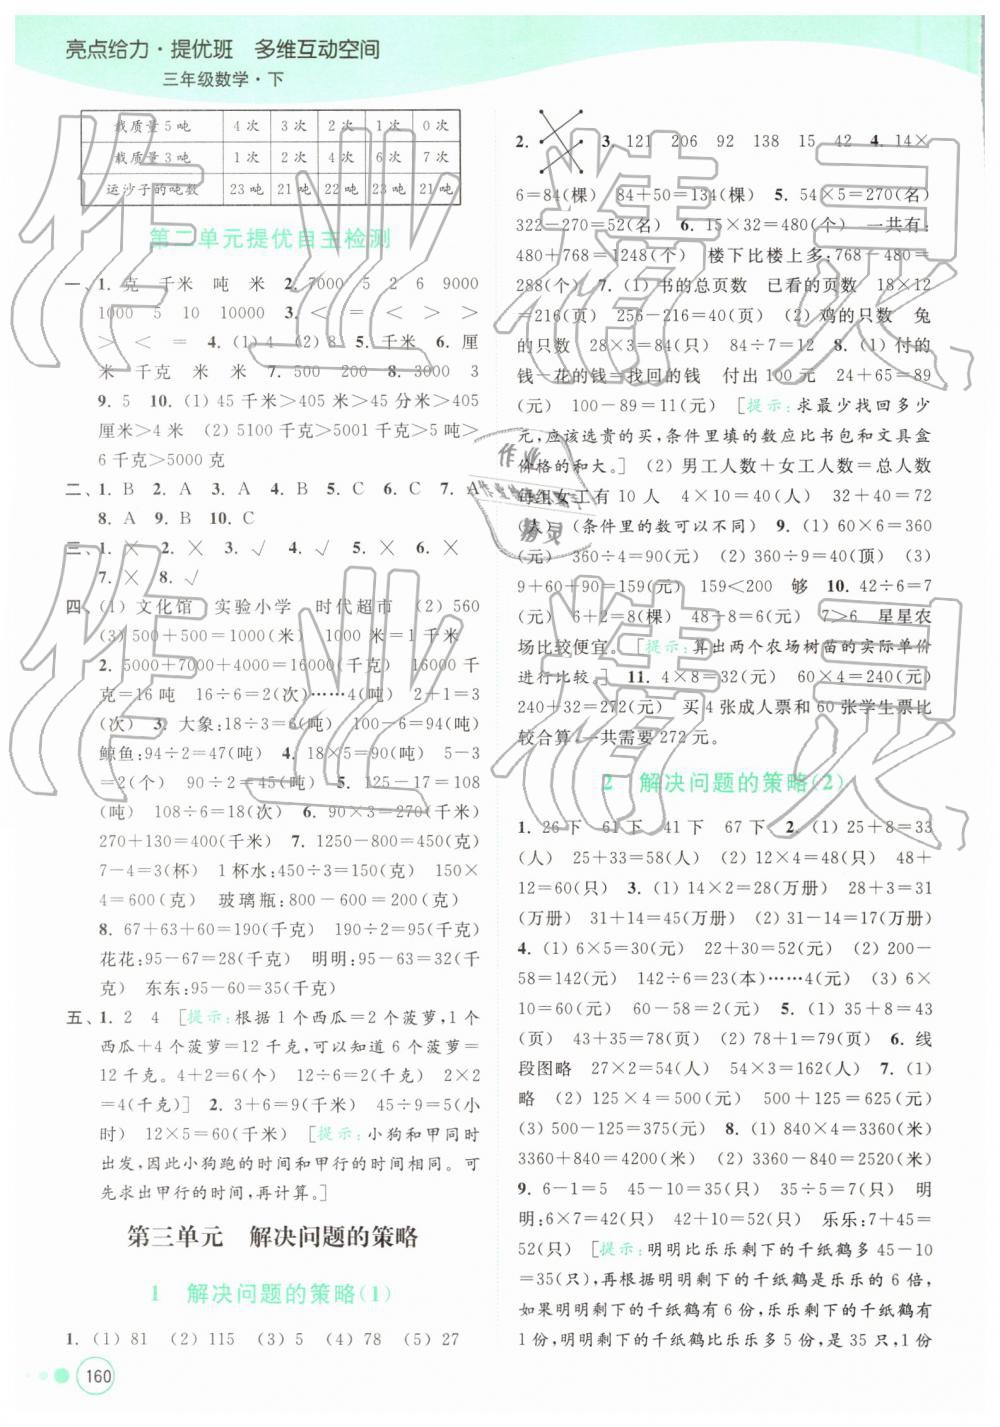 亮点给力·提优班 多维互动空间
三年级数学·下
载质量5吨 4次 3次 2次 1次 0次
载质量3吨 1次 2次 4次 6次 7次
运沙子的吨数 23吨 21吨 22吨 23吨 21吨
第二单元提优自主检测
一、1. 克 千米 吨 米 2. 7000 5 2 6 9000
1000 5 10 10000 3. < = < > >
> < = 4. (1)4 (2)8 5. 千米 6. 厘
米 千克 米 米 7. 500 200 8. 3000 3
9. 5 10. (1) 45千米>405米>45分米>405
厘米>4米 (2) 5100千克>5001千克>5吨>
6千克>5000克
二、1. B 2. A 3. A 4. C 5. B 6. C 7. A
8. A 9. B 10. C
三、1. × 2. × 3. √ 4. √ 5. × 6. ×
7. × 8. √
四、(1) 文化馆 实验小学 时代超市 (2) 560
(3) 500+500=1000(米) 1000米=1千米
2. 5000+7000+4000=16000(千克) 16000千
克=16吨 16÷6=2(次)……4(吨) 2+1=3
(次) 3. 大象:18÷3=6(吨) 100-6=94(吨)
鲸鱼:94÷2=47(吨) 4. 15×6=90(吨) 5-3
=2(个) 90÷2=45(吨) 5. 125-17=108
(吨) 108÷6=18(次) 6. 90×3=270(千米)
270+130=400(千米) 7. 1250-800=450(克)
7-4=3(杯) 1杯水:450÷3=150(克) 150×
4=600(克) 玻璃瓶:800-600=200(克)
8. 67+63+60=190(千克) 190÷2=95(千克)
花花:95-67=28(千克) 明明:95-63=32(千
克) 东东:95-60=35(千克)
五、1. 2 4 [提示:根据1个西瓜=2个菠萝,1个
西瓜+4个菠萝=12千克,可以知道6个菠萝=
12千克。4+2=6(个) 12÷6=2(千克) 2×2
=4(千克)] 2. 3+6=9(千米) 45÷9=5(小
时) 12×5=60(千米) [提示:小狗和甲同时
出发,因此小狗跑的时间和甲行的时间相同。可
先求出甲行的时间,再计算。]
第三单元 解决问题的策略
1 解决问题的策略(1)
1. (1) 81 (2) 115 (3) 5 (4) 78 (5) 27
160
2. 3. 121 206 92 138 15 42 4. 14×
6=84(棵) 84+50=134(棵) 5. 54×5=270(名)
322-270=52(名) 6. 15×32=480(个) 一共有:
480+768=1248(个) 楼下比楼上多:768-480=
288(个) 7. (1) 书的总页数 已看的页数 18×12
=216(页) 256-216=40(页) (2) 鸡的只数 兔
的只数 28×3=84(只) 84÷7=12 8. (1) 付的
钱-花的钱=找回的钱 付出100元 24+65=89
(元) 100-89=11(元) [提示:求最少找回多少
元,应该选贵的买,条件里填的数应比书包和文具盒
价格的和大。] (2) 男工人数+女工人数=总人数
每组女工有10人 4×10=40(人) 32+40=72
(人) (条件里的数可以不同) 9. (1) 60×6=360
(元) 360÷4=90(元) (2) 360÷9=40(顶) (3)
9+60+90=159(元) 159<200 够 10. 42÷6=7
(元) 6+2=8(棵) 48÷8=6(元) 7>6 星星农
场比较便宜。 [提示:算出两个农场树苗的实际单价
进行比较。] 11. 4×8=32(元) 60×4=240(元)
240+32=272(元) 买4张成人票和60张学生票比
较合算,一共需要272元。
2 解决问题的策略(2)
1. 26下 61下 41下 67下 2. (1) 25+8=33
(人) 25+33=58(人) (2) 12×4=48(只) 48+
12=60(只) 3. (1) 14×2=28(万册) 28+3=31
(万册) 31+14=45(万册) (2) 31-14=17(万册)
4. (1) 6×5=30(元) 22+30=52(元) (2) 200-
58=142(元) 142÷6=23(本)……4(元) (3) 6×
10=60(元) 60+58=118(元) 5. (1) 35+8=43
(页) 43+35=78(页) (2) 78+1=79(页) 6. 线
段图略 27×2=54(元) 54×3=162(元) 7. (1)
略 (2) 125×4=500(元) 500+125=625(元)
(3) 500-125=375(元) 8. (1) 840×4=3360(米)
3360+840=4200(米) (2) 3360-840=2520(米)
9. 6-1=5 45-10=35(只) 35÷5=7(只) 明
明:6×7=42(只) 42+10=52(只) 乐乐:7+45=
52(只) [提示:明明比乐乐剩下的千纸鹤多45-10
=35(只),又根据明明剩下的千纸鹤是乐乐的6倍,
如果明明剩下的千纸鹤有6份,乐乐剩下的千纸鹤有
1份,明明剩下的千纸鹤比乐乐多5份,是35只,1份
作业精灵